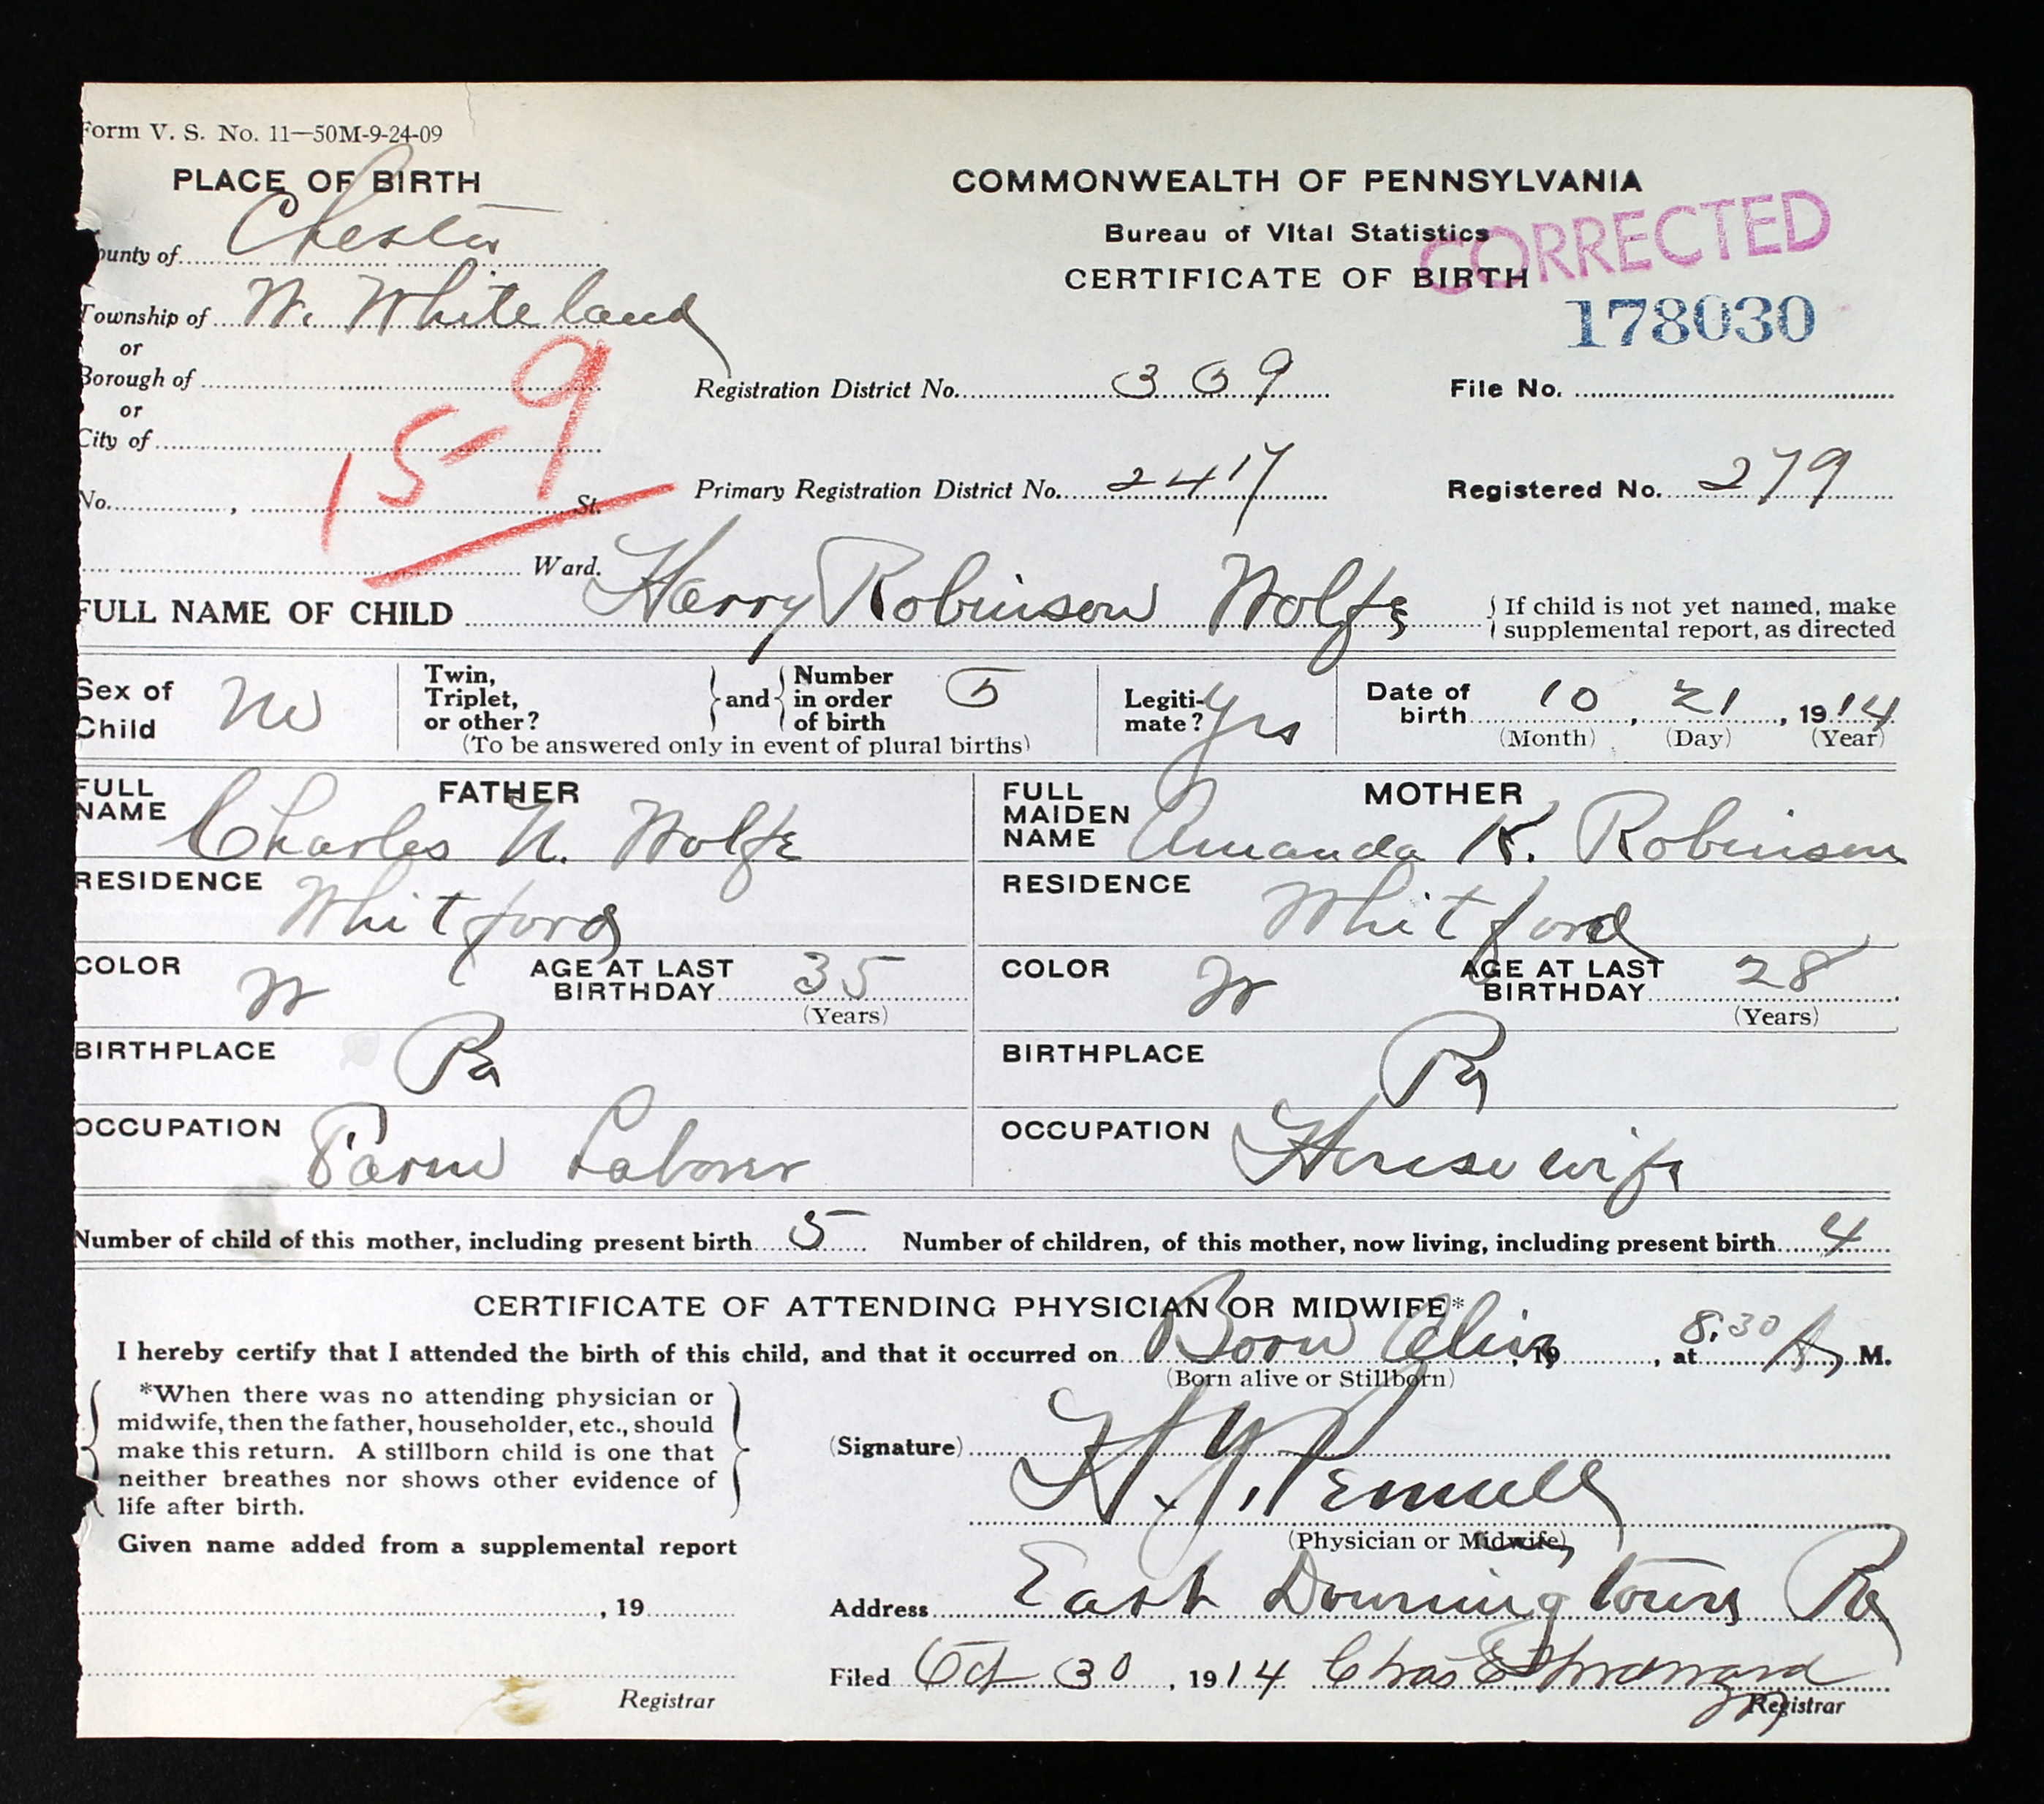 Form V. S. No. 11—50M-9-24-09
PLACE OF BIRTH
County of Chester
Township of W. Whiteland
or
Borough of
or
City of
No. , St.
Ward.
15-9
COMMONWEALTH OF PENNSYLVANIA
Bureau of Vital Statistics
CERTIFICATE OF BIRTH
CORRECTED
178030
Registration District No. 309 File No.
Primary Registration District No. 2417 Registered No. 279
FULL NAME OF CHILD Harry Robinson Wolfe
If child is not yet named, make
supplemental report, as directed
Sex of Child M
Twin, Triplet, or other? and Number in order of birth 5
(To be answered only in event of plural births)
Legitimate? Yes
Date of birth 10, 21, 1914
(Month) (Day) (Year)
FATHER
FULL NAME Charles N. Wolfe
RESIDENCE Whitford
COLOR W AGE AT LAST BIRTHDAY 35
(Years)
BIRTHPLACE Pa
OCCUPATION Farm Laborer
MOTHER
FULL MAIDEN NAME Amanda K. Robinson
RESIDENCE Whitford
COLOR W AGE AT LAST BIRTHDAY 28
(Years)
BIRTHPLACE Pa
OCCUPATION Housewife
Number of child of this mother, including present birth 5 Number of children, of this mother, now living, including present birth 4
CERTIFICATE OF ATTENDING PHYSICIAN OR MIDWIFE*
I hereby certify that I attended the birth of this child, and that it occurred on Born Alive, 19 , at 8.30 A. M.
(Born alive or Stillborn)
*When there was no attending physician or
midwife, then the father, householder, etc., should
make this return. A stillborn child is one that
neither breathes nor shows other evidence of
life after birth.
Given name added from a supplemental report
, 19
Registrar
(Signature) H. Y. Pennell
(Physician or Midwife)
Address East Downingtown Pa
Filed Oct 30, 1914 Chas E.
Registrar